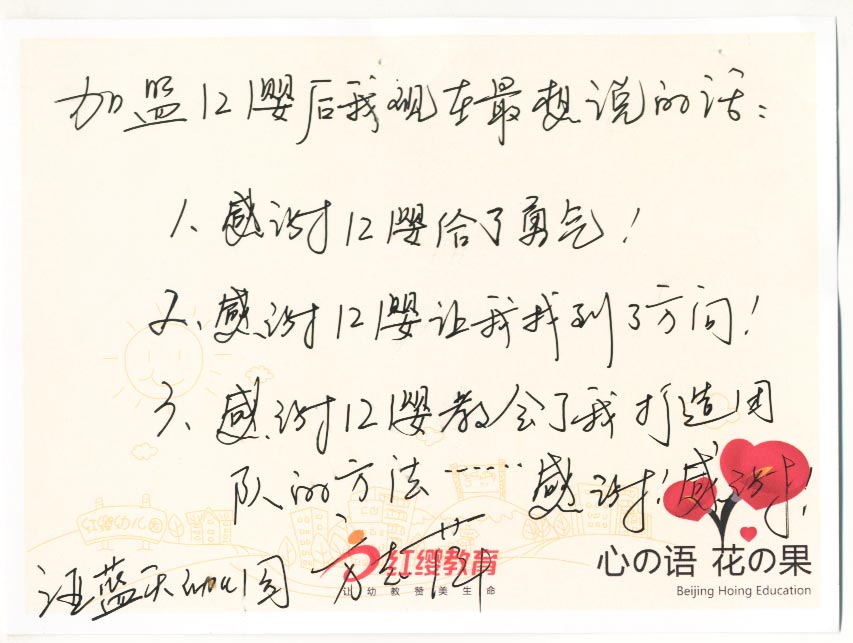 加盟红缨后我现在最想说的话:
1、感谢红缨给了勇气!
2、感谢红缨让我找到了方向!
3、感谢红缨教会了我打造团
队的方法……感谢!感谢!
蓝天幼儿园
红缨幼儿园
红缨教育
让幼教赞美生命
心の语 花の果
Beijing Hoing Education